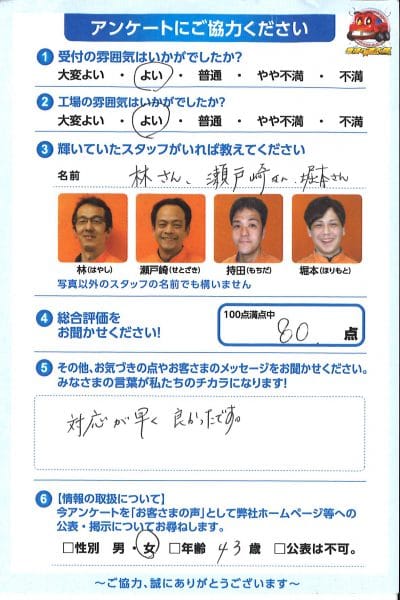 アンケートにご協力ください
1 受付の雰囲気はいかがでしたか?
大変よい ・ よい ・ 普通 ・ やや不満 ・ 不満
2 工場の雰囲気はいかがでしたか?
大変よい ・ よい ・ 普通 ・ やや不満 ・ 不満
3 輝いていたスタッフがいれば教えてください
名前 林さん、瀬戸崎さん、堀本さん
林(はやし) 瀬戸崎(せとざき) 持田(もちだ) 堀本(ほりもと)
写真以外のスタッフの名前でも構いません
4 総合評価を
お聞かせください!
100点満点中
80. 点
5 その他、お気づきの点やお客さまのメッセージをお聞かせください。
みなさまの言葉が私たちのチカラになります!
対応が早く 良かったです。
6 【情報の取扱について】
今アンケートを「お客さまの声」として弊社ホームページ等への
公表・掲示についてお尋ねします。
□性別 男・女 □年齢 43 歳 □公表は不可。
～ご協力、誠にありがとうございます～